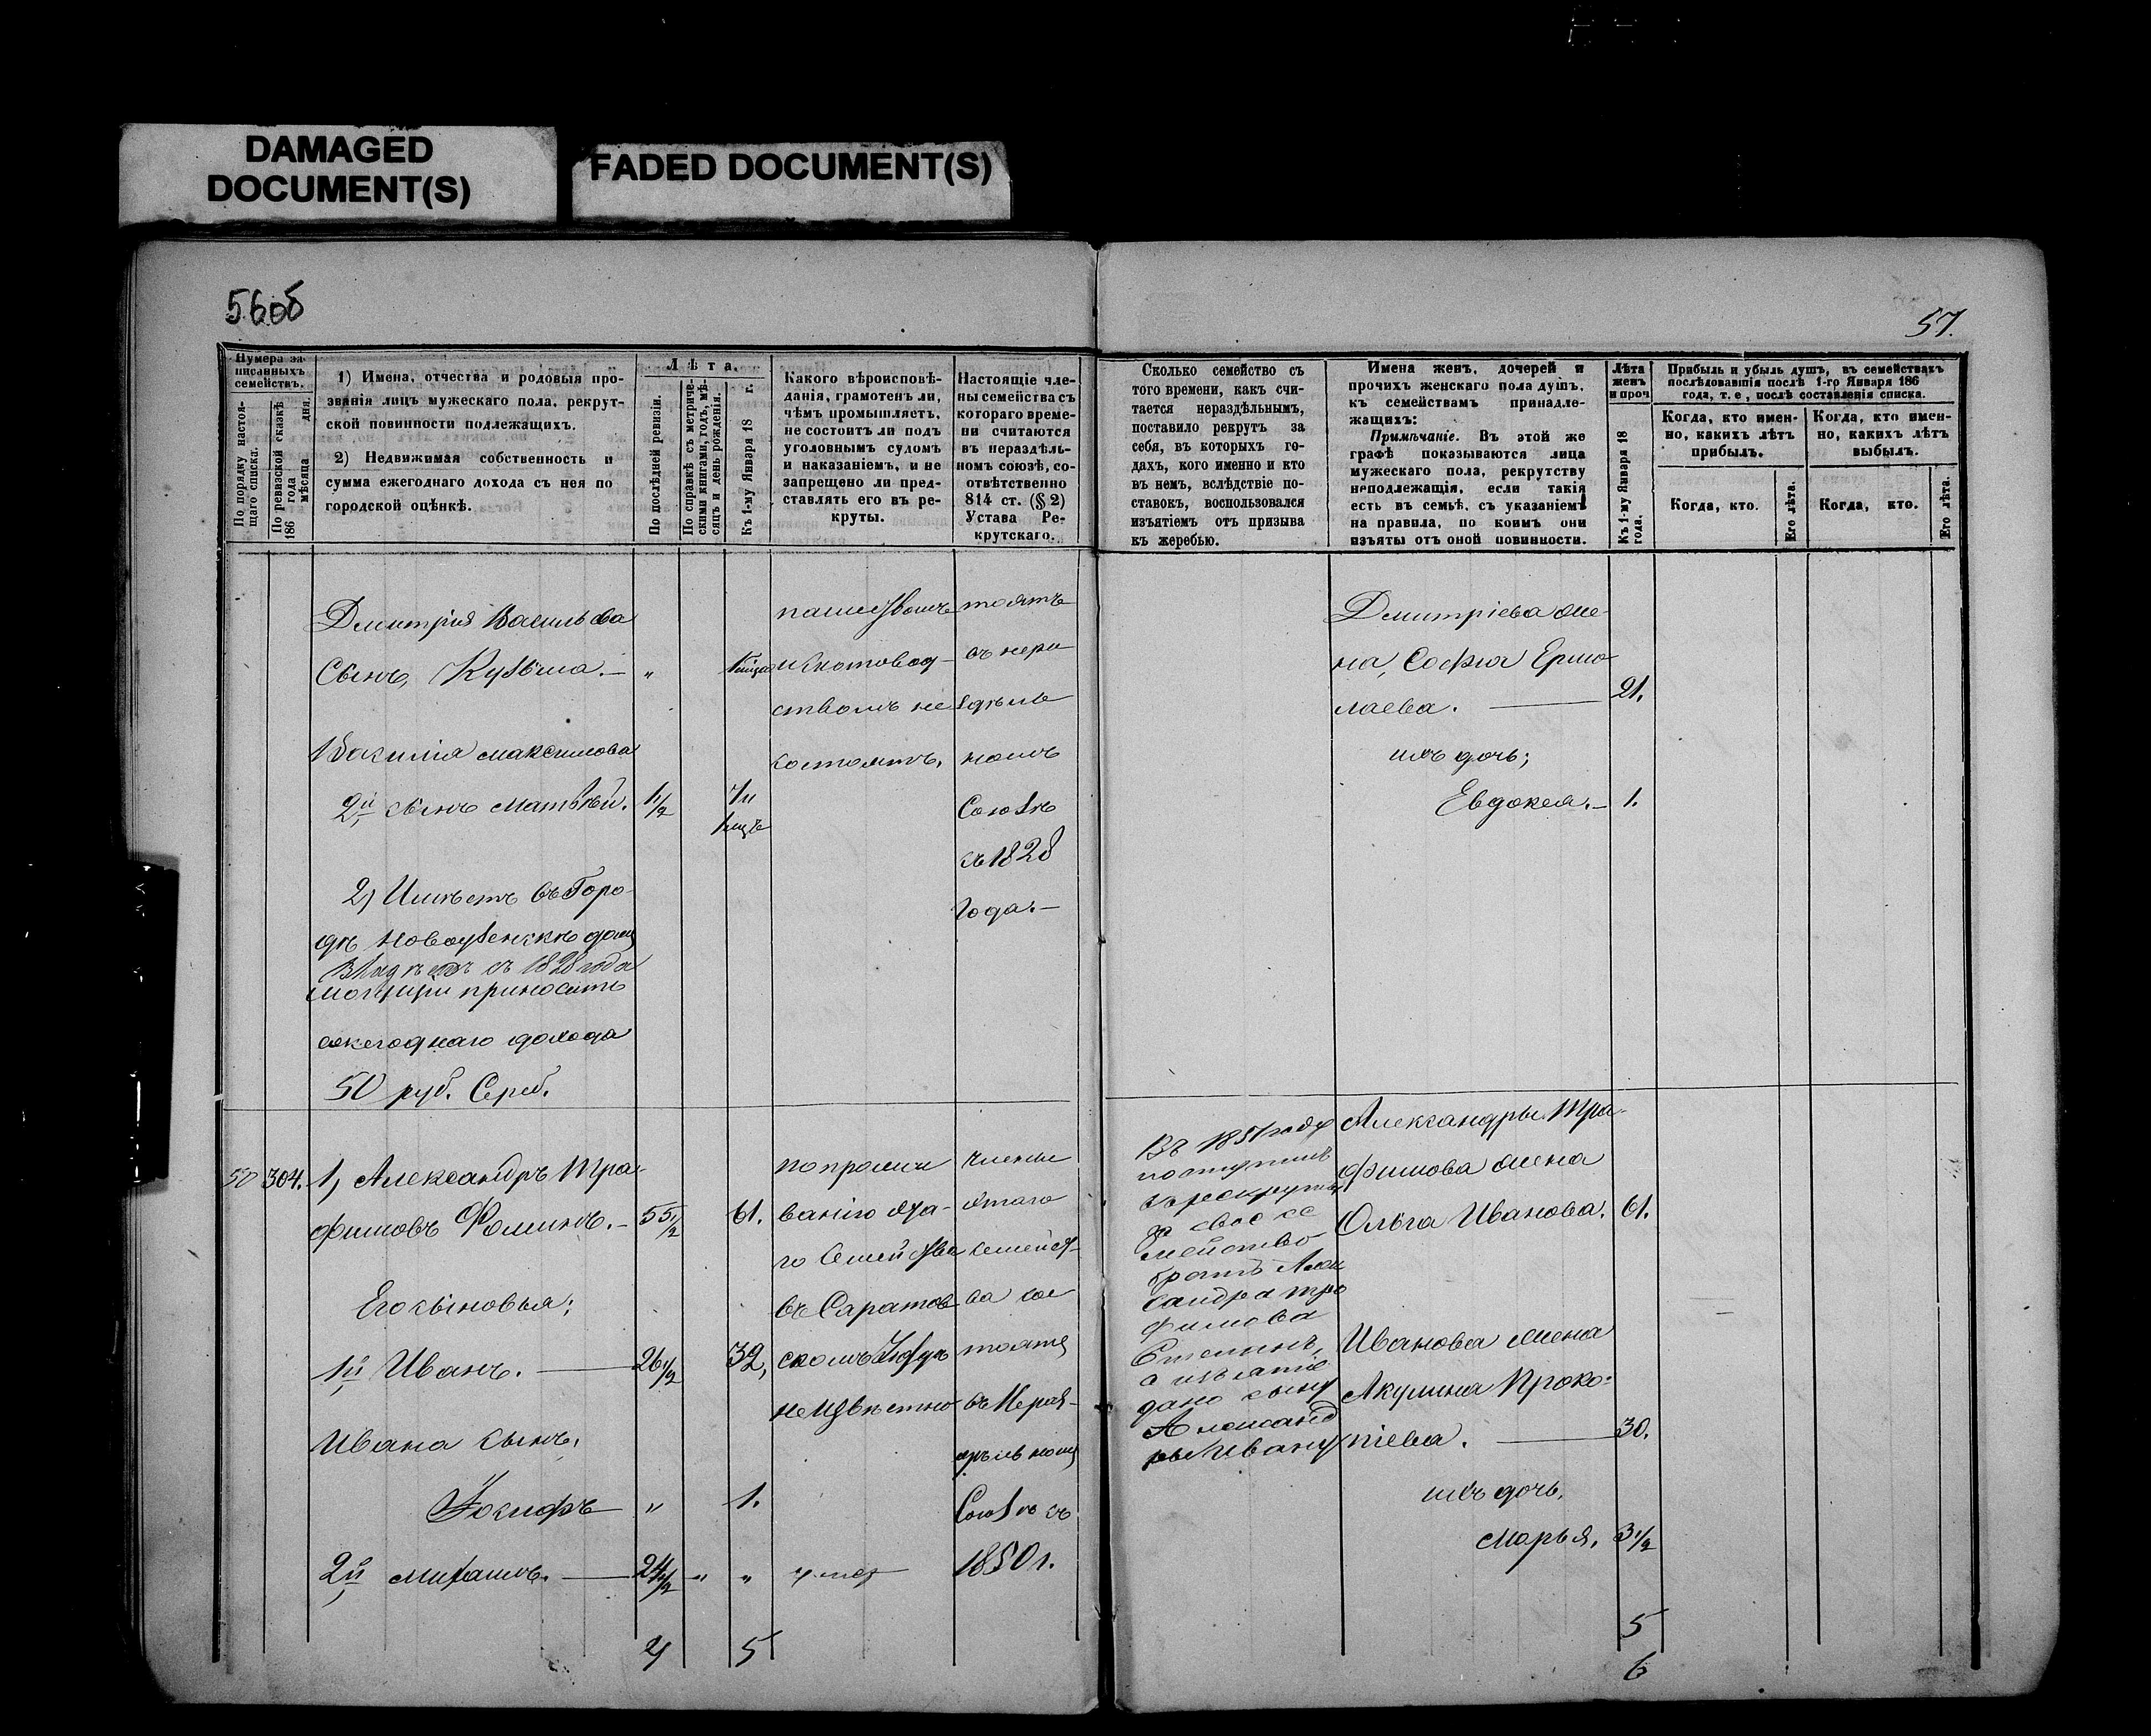 DAMAGED
DOCUMENT(S)
FADED DOCUMENT(S)
56об
57.
Нумера за-
писанныхъ
семействъ.
По порядку настоя-
щаго списка.
По ревизской сказкѣ
186 года
мѣсяца дня.
1) Имена, отчества и родовыя про-
званія лицъ мужескаго пола, рекрут-
ской повинности подлежащихъ.
2) Недвижимая собственность и
сумма ежегоднаго дохода съ нея по
городской оцѣнкѣ.
Лѣта.
По послѣдней ревизіи.
По справкѣ съ метриче-
скими книгами, годъ, мѣ-
сяцъ и день рожденія.
Къ 1-му Января 18 г.
Какого вѣроисповѣ-
данія, грамотенъ ли,
чѣмъ промышляетъ,
не состоитъ ли подъ
уголовнымъ судомъ
и наказаніемъ, и не
запрещено ли пред-
ставлять его въ ре-
круты.
Настоящіе чле-
ны семейства съ
котораго време-
ни считаются
въ нераздѣль-
номъ союзѣ, со-
отвѣтственно
814 ст. (§ 2)
Устава Ре-
крутскаго.
Сколько семейство съ
того времени, какъ счи-
тается нераздѣльнымъ,
поставило рекрутъ за
себя, въ которыхъ го-
дахъ, кого именно и кто
въ немъ, вслѣдствіе по-
ставокъ, воспользовался
изъятіемъ отъ призыва
къ жеребью.
Имена женъ, дочерей и
прочихъ женскаго пола душъ,
къ семействамъ принадле-
жащихъ:
Примѣчаніе. Въ этой же
графѣ показываются лица
мужескаго пола, рекрутству
неподлежащія, если такія
есть въ семьѣ, съ указаніемъ
на правила, по коимъ они
изъяты отъ оной повинности.
Лѣта
женъ
и проч.
Къ 1-му Января 18
года.
Прибыль и убыль душъ, въ семействахъ
послѣдовавшія послѣ 1-го Января 186
года, т. е., послѣ составленія списка.
Когда, кто имен-
но, какихъ лѣтъ
прибылъ.
Когда, кто имен-
но, какихъ лѣтъ
выбылъ.
Когда, кто.
Его лѣта.
Когда, кто.
Его лѣта.
Дмитрія Васильева
Сынъ, Кузьма. — "
Василія Максимова
2й сынъ Матвѣй. 1/2
2) Имѣетъ въ Горо-
дѣ Новоузенскѣ домъ
владѣетъ съ 1828 года
могущій приносить
ежегоднаго дохода
50 руб. Сереб.
7и
1мцъ
пашествомъ
и скотовод-
ствомъ не
состоятъ.
тоятъ
въ нера
здѣль
номъ
Союзѣ
съ 1828
Года. —
Дмитріева же-
на, Софья Ермо
лаева. — 21.
ихъ дочь;
Евдокея. — 1.
50 304. 1) Александръ Тра-
фимовъ Фоминъ. — 55 1/2 61.
Его сыновья;
1й Иванъ. — 26 1/2 32,
Ивана сынъ,
Іосифъ " 1.
2й Михаилъ. — 24 1/2 " "
4 5
по прожи
ванію эта-
го Семейства
въ Саратов
скомъ Уѣздѣ
неизвѣстно
умер
члены
этаго
семейст-
ва сос
тоятъ
въ Нераз-
дѣльномъ
Союзѣ съ
1850 г.
Въ 1851 году
поступилъ
въ рекруты
за свое се
мейство
братъ Алек
сандра Тро
фимова
а изъятіе
дано сыну
Александ
ры Ивану
Александры Тра-
фимова жена
Ольга Иванова. 61.
Иванова жена
Акулина Проко-
піева. — 30.
ихъ дочь,
Марья, 3 1/2
5
6